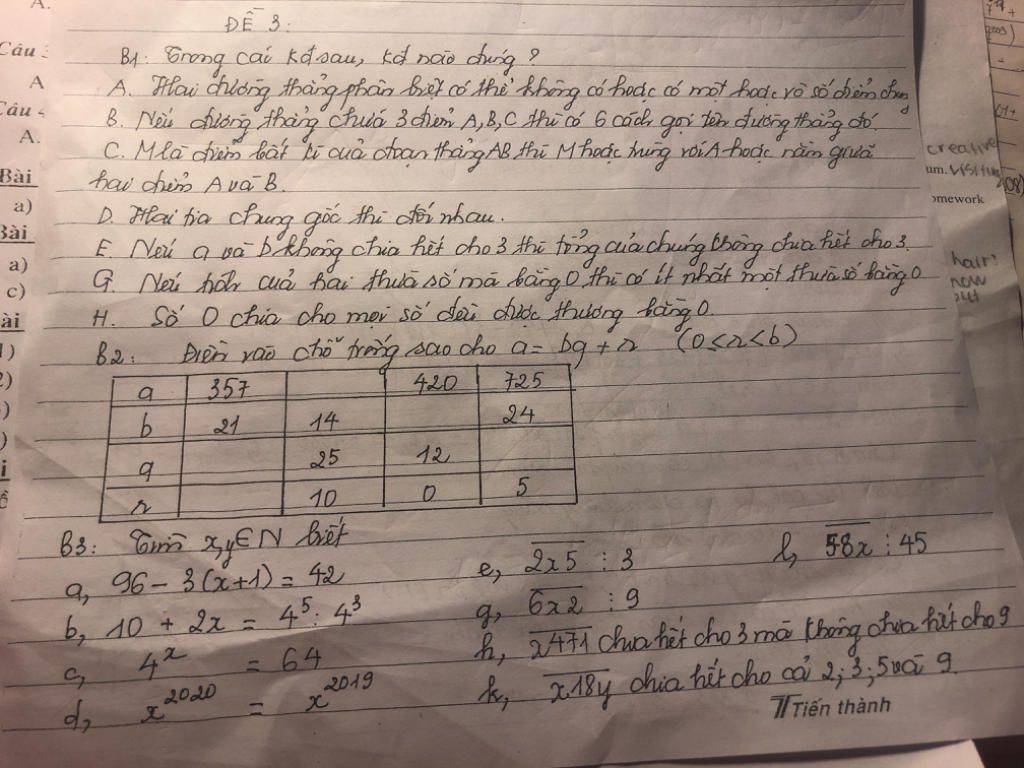 A.
ĐỀ 3:
Câu 3
B1: Trong các kđ sau, kđ nào đúng?
A
A. Hai đường thẳng phân biệt có thể không có hoặc có một hoặc vô số điểm chung
Câu 4
B. Nếu đường thẳng chứa 3 điểm A, B, C thì có 6 cách gọi tên đường thẳng đó.
A.
C. M là điểm bất kì của đoạn thẳng AB thì M hoặc trùng với A hoặc nằm giữa
creative
um. VISITING
Bài
hai điểm A và B.
08)
a)
D. Hai tia chung gốc thì đối nhau.
omework
Bài
E. Nếu a và b không chia hết cho 3 thì tổng của chúng không chia hết cho 3.
a)
G. Nếu tích của hai thừa số mà bằng 0 thì có ít nhất một thừa số bằng 0
hair?
now
out
c)
H. Số 0 chia cho mọi số đều được thương bằng 0.
ài
B2: Điền vào chỗ trống sao cho a = bq + r (0 ≤ r < b)
1)
a 357 420 725
2)
b 21 14 24
)
q 25 12
)
r 10 0 5
B3: Tìm x,y ∈ N biết
a, 96 - 3(x+1) = 42 e, 2x5 ⋮ 3 l, 58x ⋮ 45
b, 10 + 2x = 4⁵ : 4³ g, 6x2 ⋮ 9
c, 4ˣ = 64 h, x471 chia hết cho 3 mà không chia hết cho 9
d, x²⁰²⁰ = x²⁰¹⁹ k, x18y chia hết cho cả 2; 3; 5 và 9.
Tiến thành